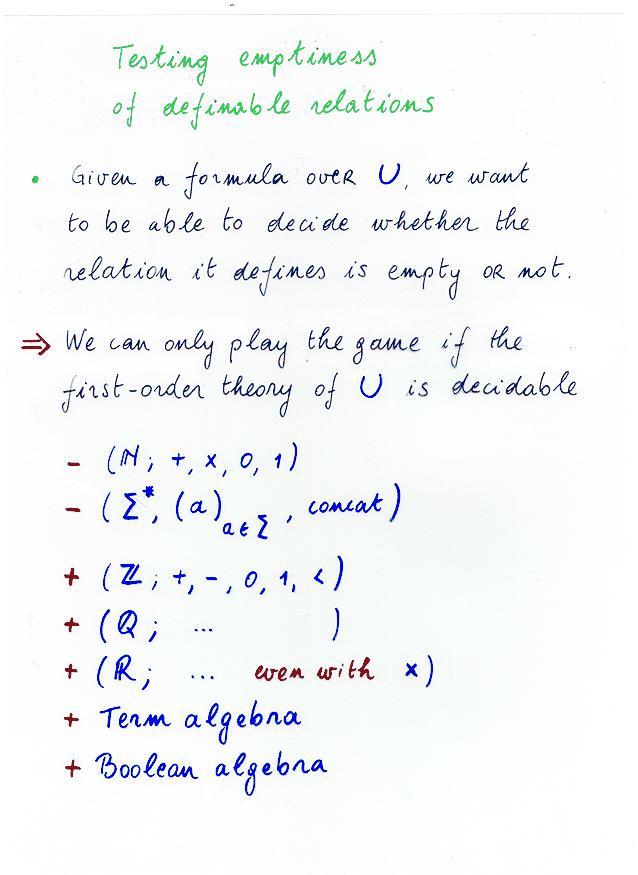 Testing emptiness
of definable relations
• Given a formula over U, we want
to be able to decide whether the
relation it defines is empty or not.
⇒ We can only play the game if the
first-order theory of U is decidable
- (ℕ; +, x, 0, 1)
- (Σ*, (a)a∈Σ, concat)
+ (ℤ; +, -, 0, 1, <)
+ (ℚ; ... )
+ (ℝ; ... even with x)
+ Term algebra
+ Boolean algebra